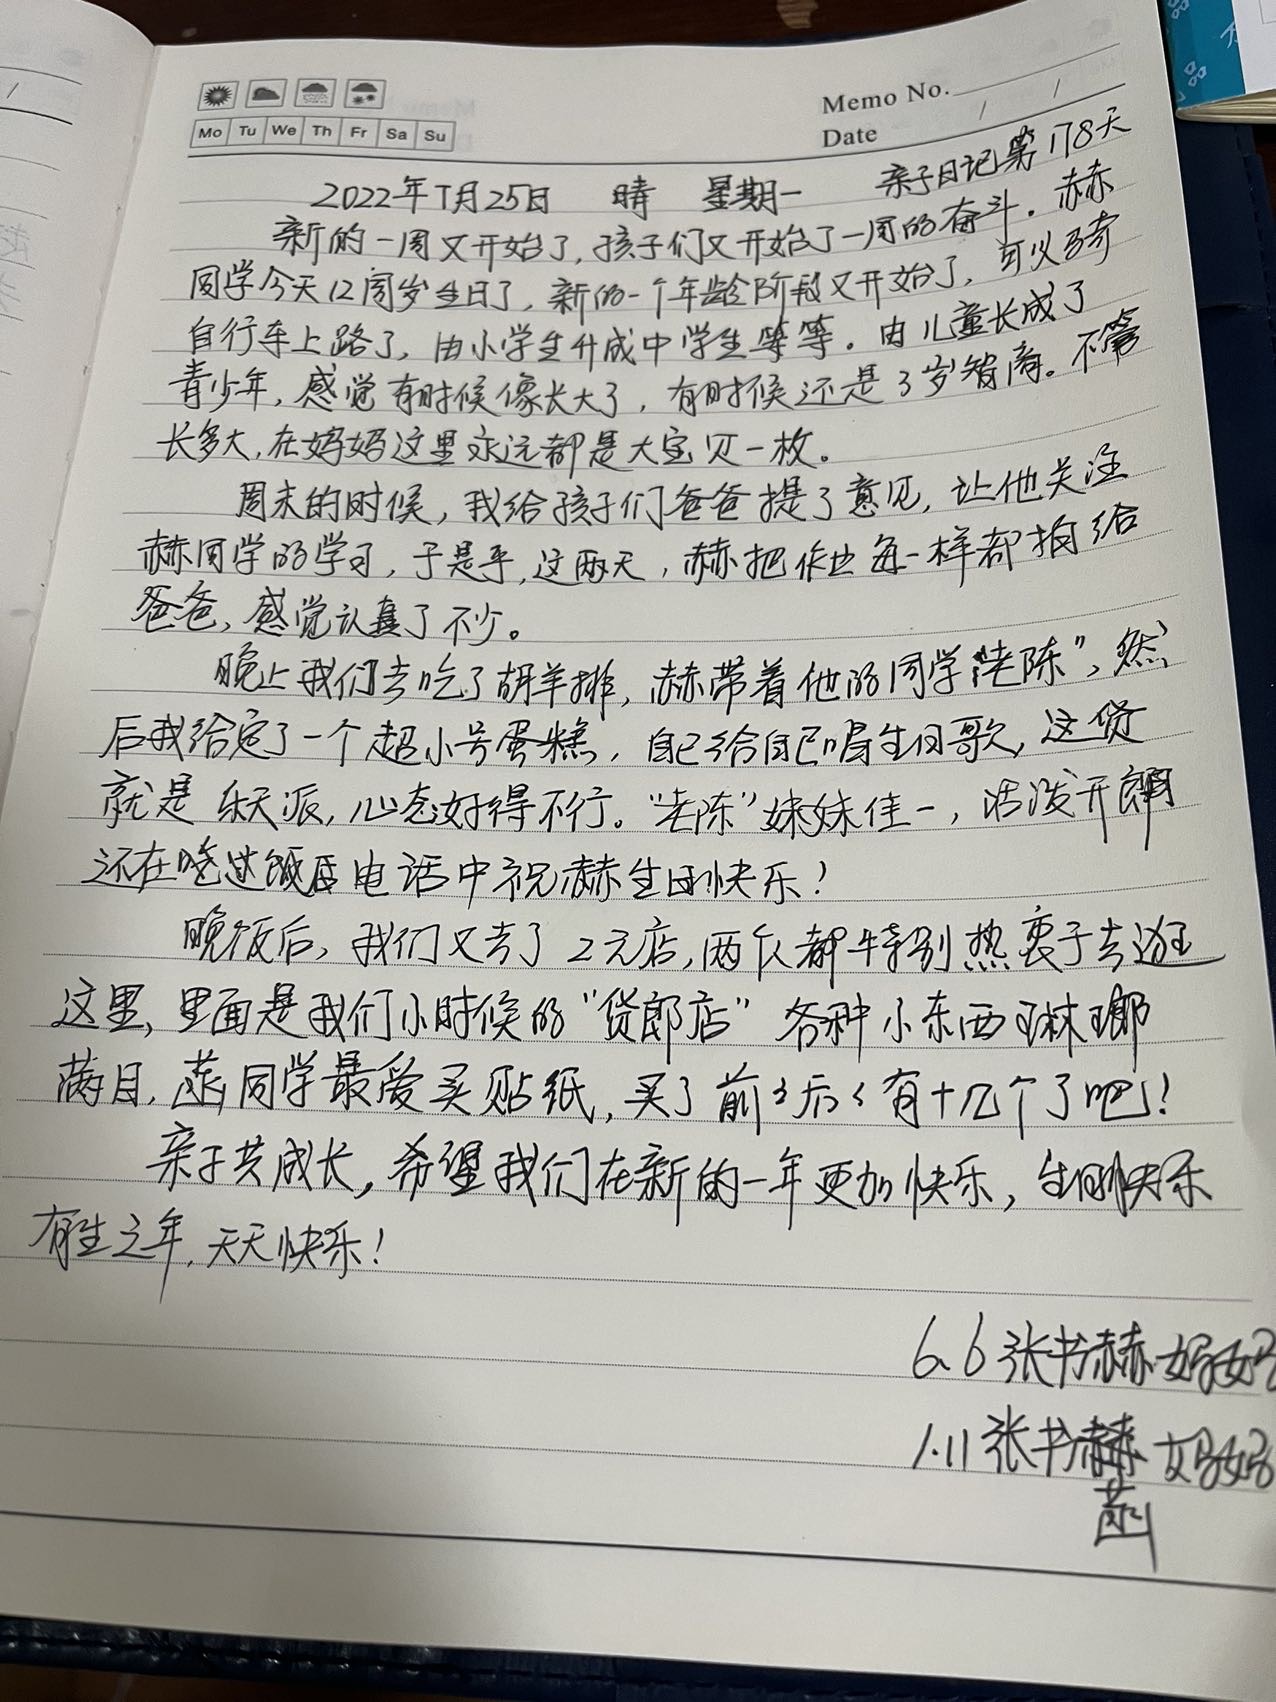 Memo No.
Mo Tu We Th Fr Sa Su
Date / /
2022年7月25日 晴 星期一 亲子日记第178天
新的一周又开始了,孩子们又开始了一周的奋斗。赫
同学今天12周岁生日了,新的一个年龄阶段又开始了,可以骑
自行车上路了,由小学生升成中学生等等。由儿童长成了
青少年,感觉有时候像长大了,有时候还是3岁智商。不管
长多大,在妈妈这里永远都是大宝贝一枚。
周末的时候,我给孩子们爸爸提了意见,让他关注
赫同学的学习,于是乎,这两天,赫把作业每一样都拍给
爸爸,感觉认真了不少。
晚上我们去吃了胡羊排,赫带着他的同学“老陈”,然
后我给定了一个超小号蛋糕,自己给自己唱生日歌,这货
就是乐天派,心态好得不行。“老陈”妹妹佳一,活泼开朗
还在吃过饭后电话中祝赫生日快乐!
晚饭后,我们又去了2元店,两个人都特别热衷于去逛
这里,里面是我们小时候的“货郎店”各种小东西琳琅
满目,菡同学最爱买贴纸,买了前前后后有十几个了吧!
亲子共成长,希望我们在新的一年更加快乐,生日快乐
有生之年,天天快乐!
6.6张书赫妈妈
1.11张书 妈妈
菡